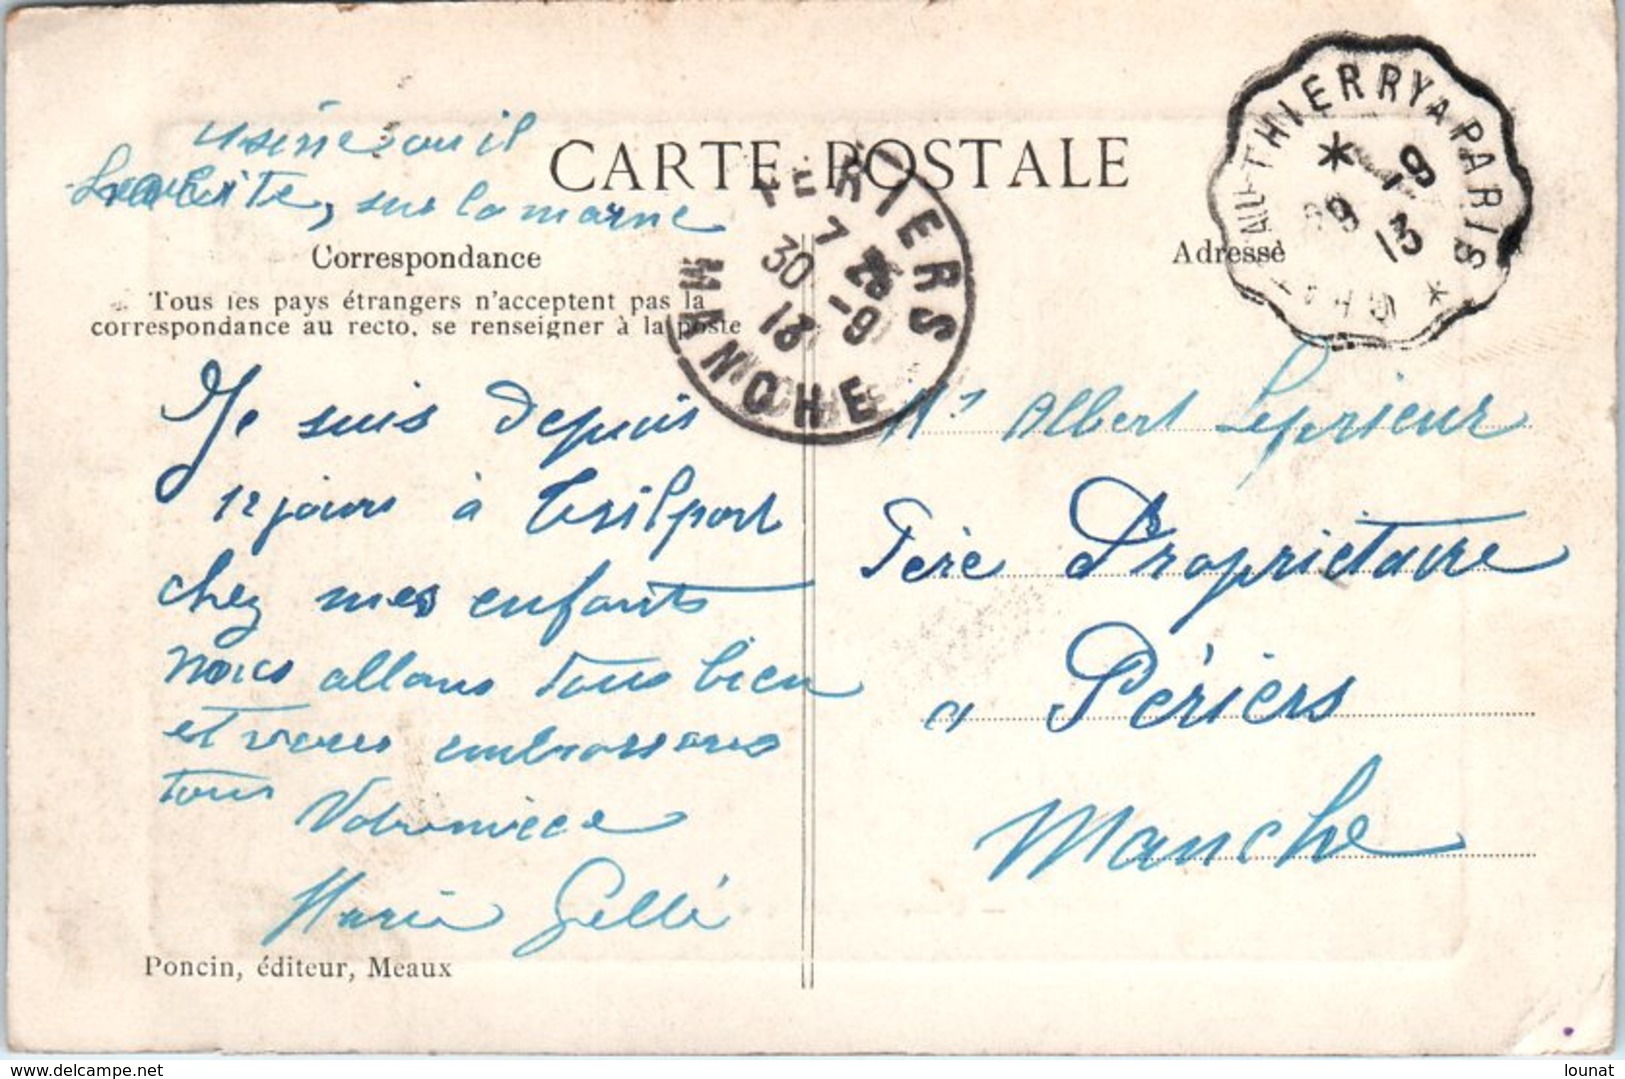 usine ou il
travaille, sur la marne
CARTE POSTALE
Correspondance
Adresse
Tous les pays étrangers n'acceptent pas la
correspondance au recto, se renseigner à la poste
PERIERS
7 25
30 -9
13
MANCHE
THIERRY A PARIS
-9
13
Je suis depuis
12 jours à Trilport
chez mes enfants
nous allons tous bien
et vous embrassons
tous
Votre nièce
Maria Gellé
Mr Albert Leprieur
Père Propriétaire
a Périers
Manche
Poncin, éditeur, Meaux
www.delcampe.net
lounat